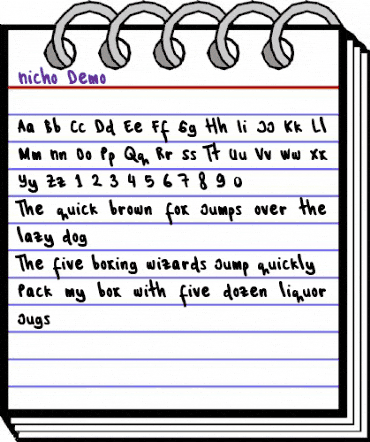 nicho Demo
Aa Bb Cc Dd Ee Ff Gg Hh Ii Jj Kk Ll
Mm nn Oo Pp Qq Rr Ss Tt Uu Vv Ww Xx
Yy Zz 1 2 3 4 5 6 7 8 9 0
The quick brown fox jumps over the
lazy dog
The five boxing wizards jump quickly
Pack my box with five dozen liquor
jugs